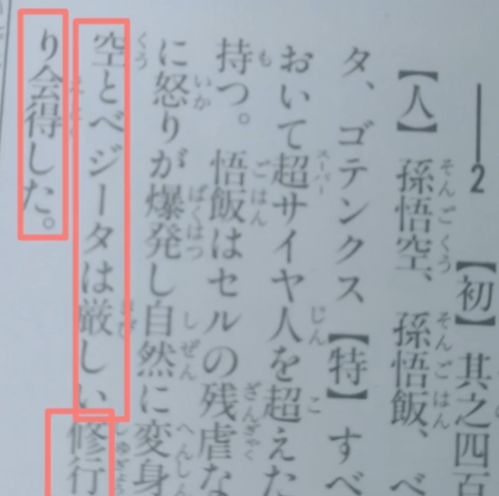 ——2
【初】其之四百
【人】孫悟空、孫悟飯、ベ
タ、ゴテンクス【特】すべ
おいて超サイヤ人を超えた
持つ。悟飯はセルの残虐な
に怒りが爆発し自然に変身
空とベジータは厳しい修行
り会得した。